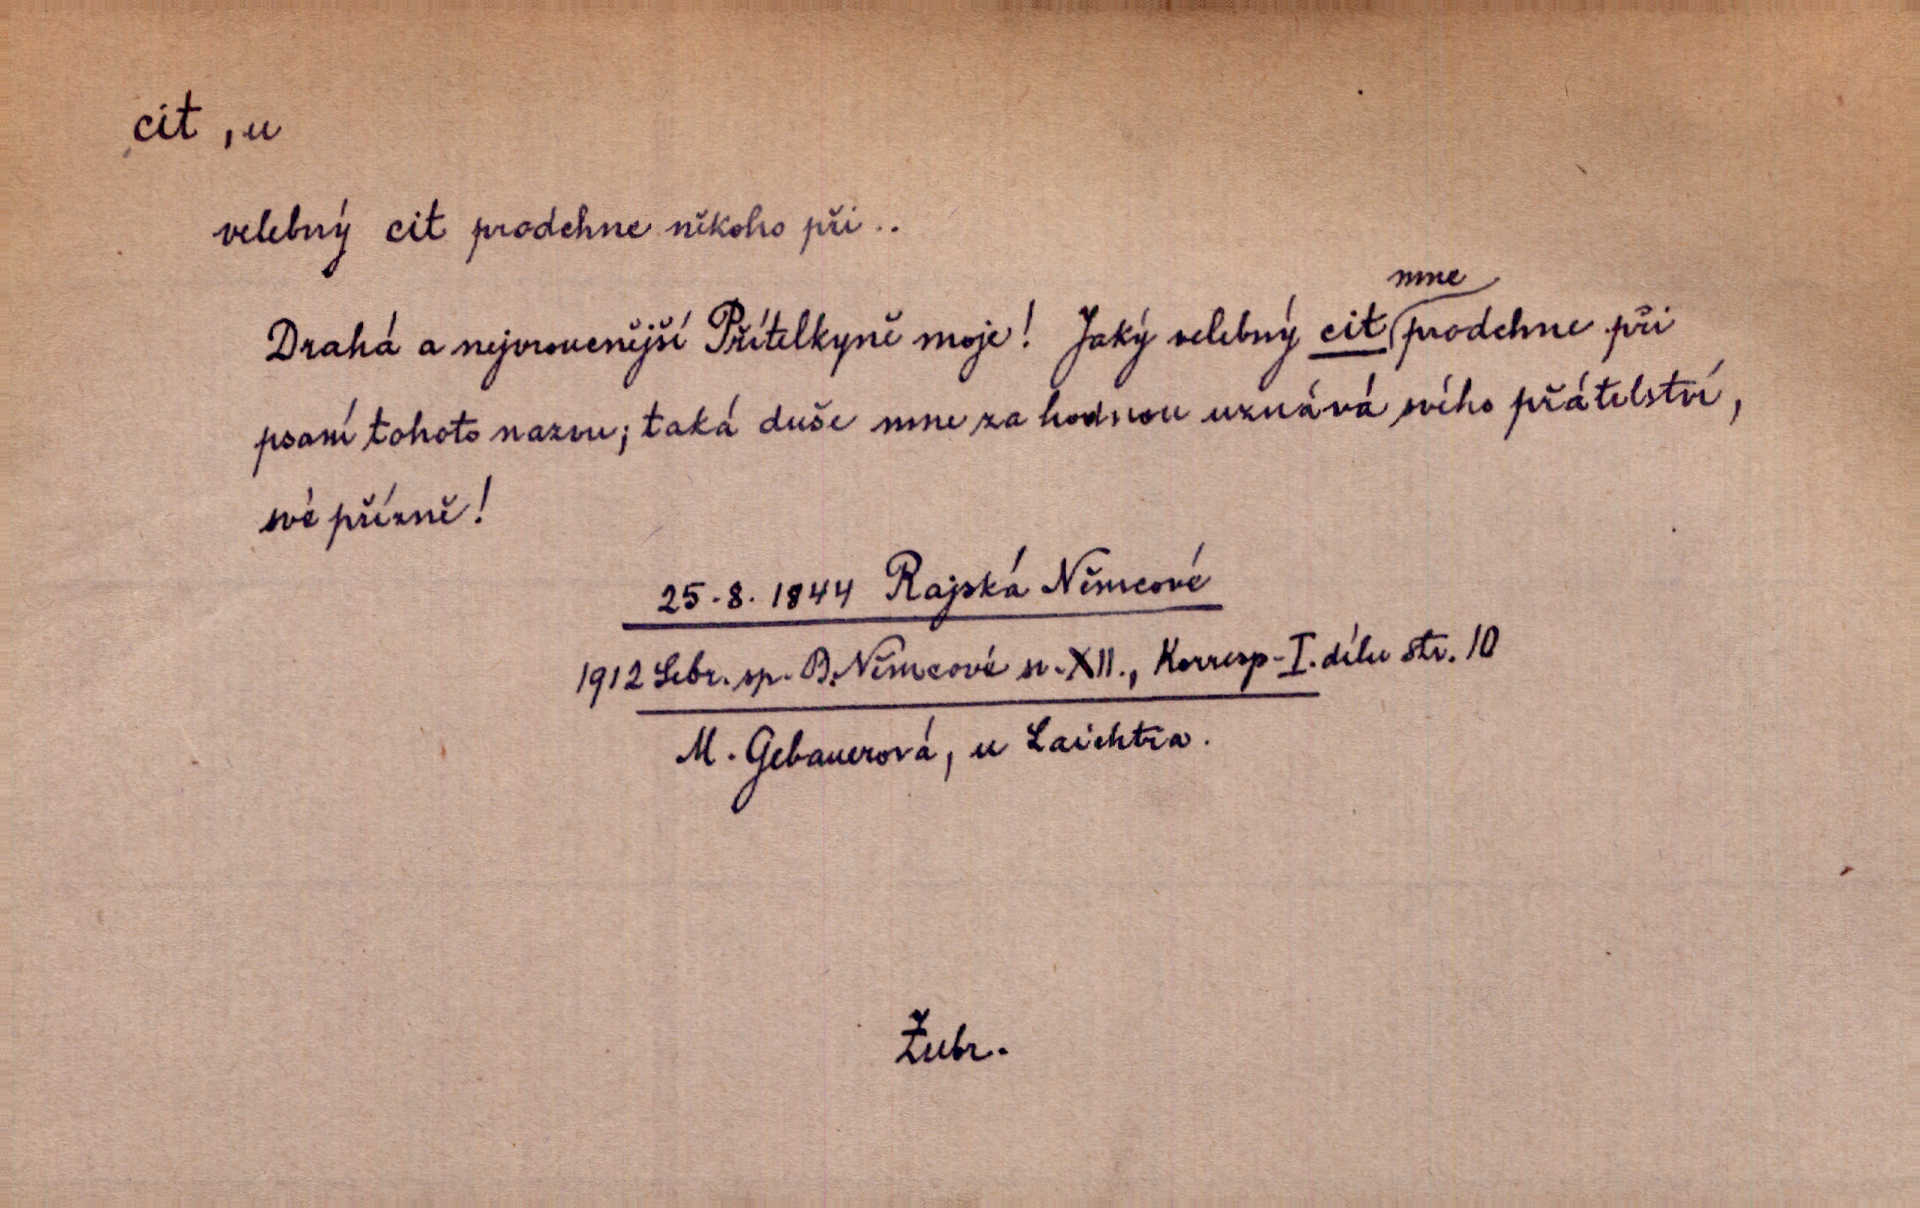 cit, u
velebný cit prodchne někoho při..
mne
Drahá a nejvrovenější Přítelkyně moje! Jaký velebný cit prodchne při
psaní tohoto nazvu; taká duše mne za hodnou uznává svého přátelství,
své přízně!
25.8.1844 Rajská Němcové
1912 Sebr. sp. B. Němcové sv. XII., Korresp. I. dílu str. 10
M. Gebauerová, u Laichtra.
Žubr.